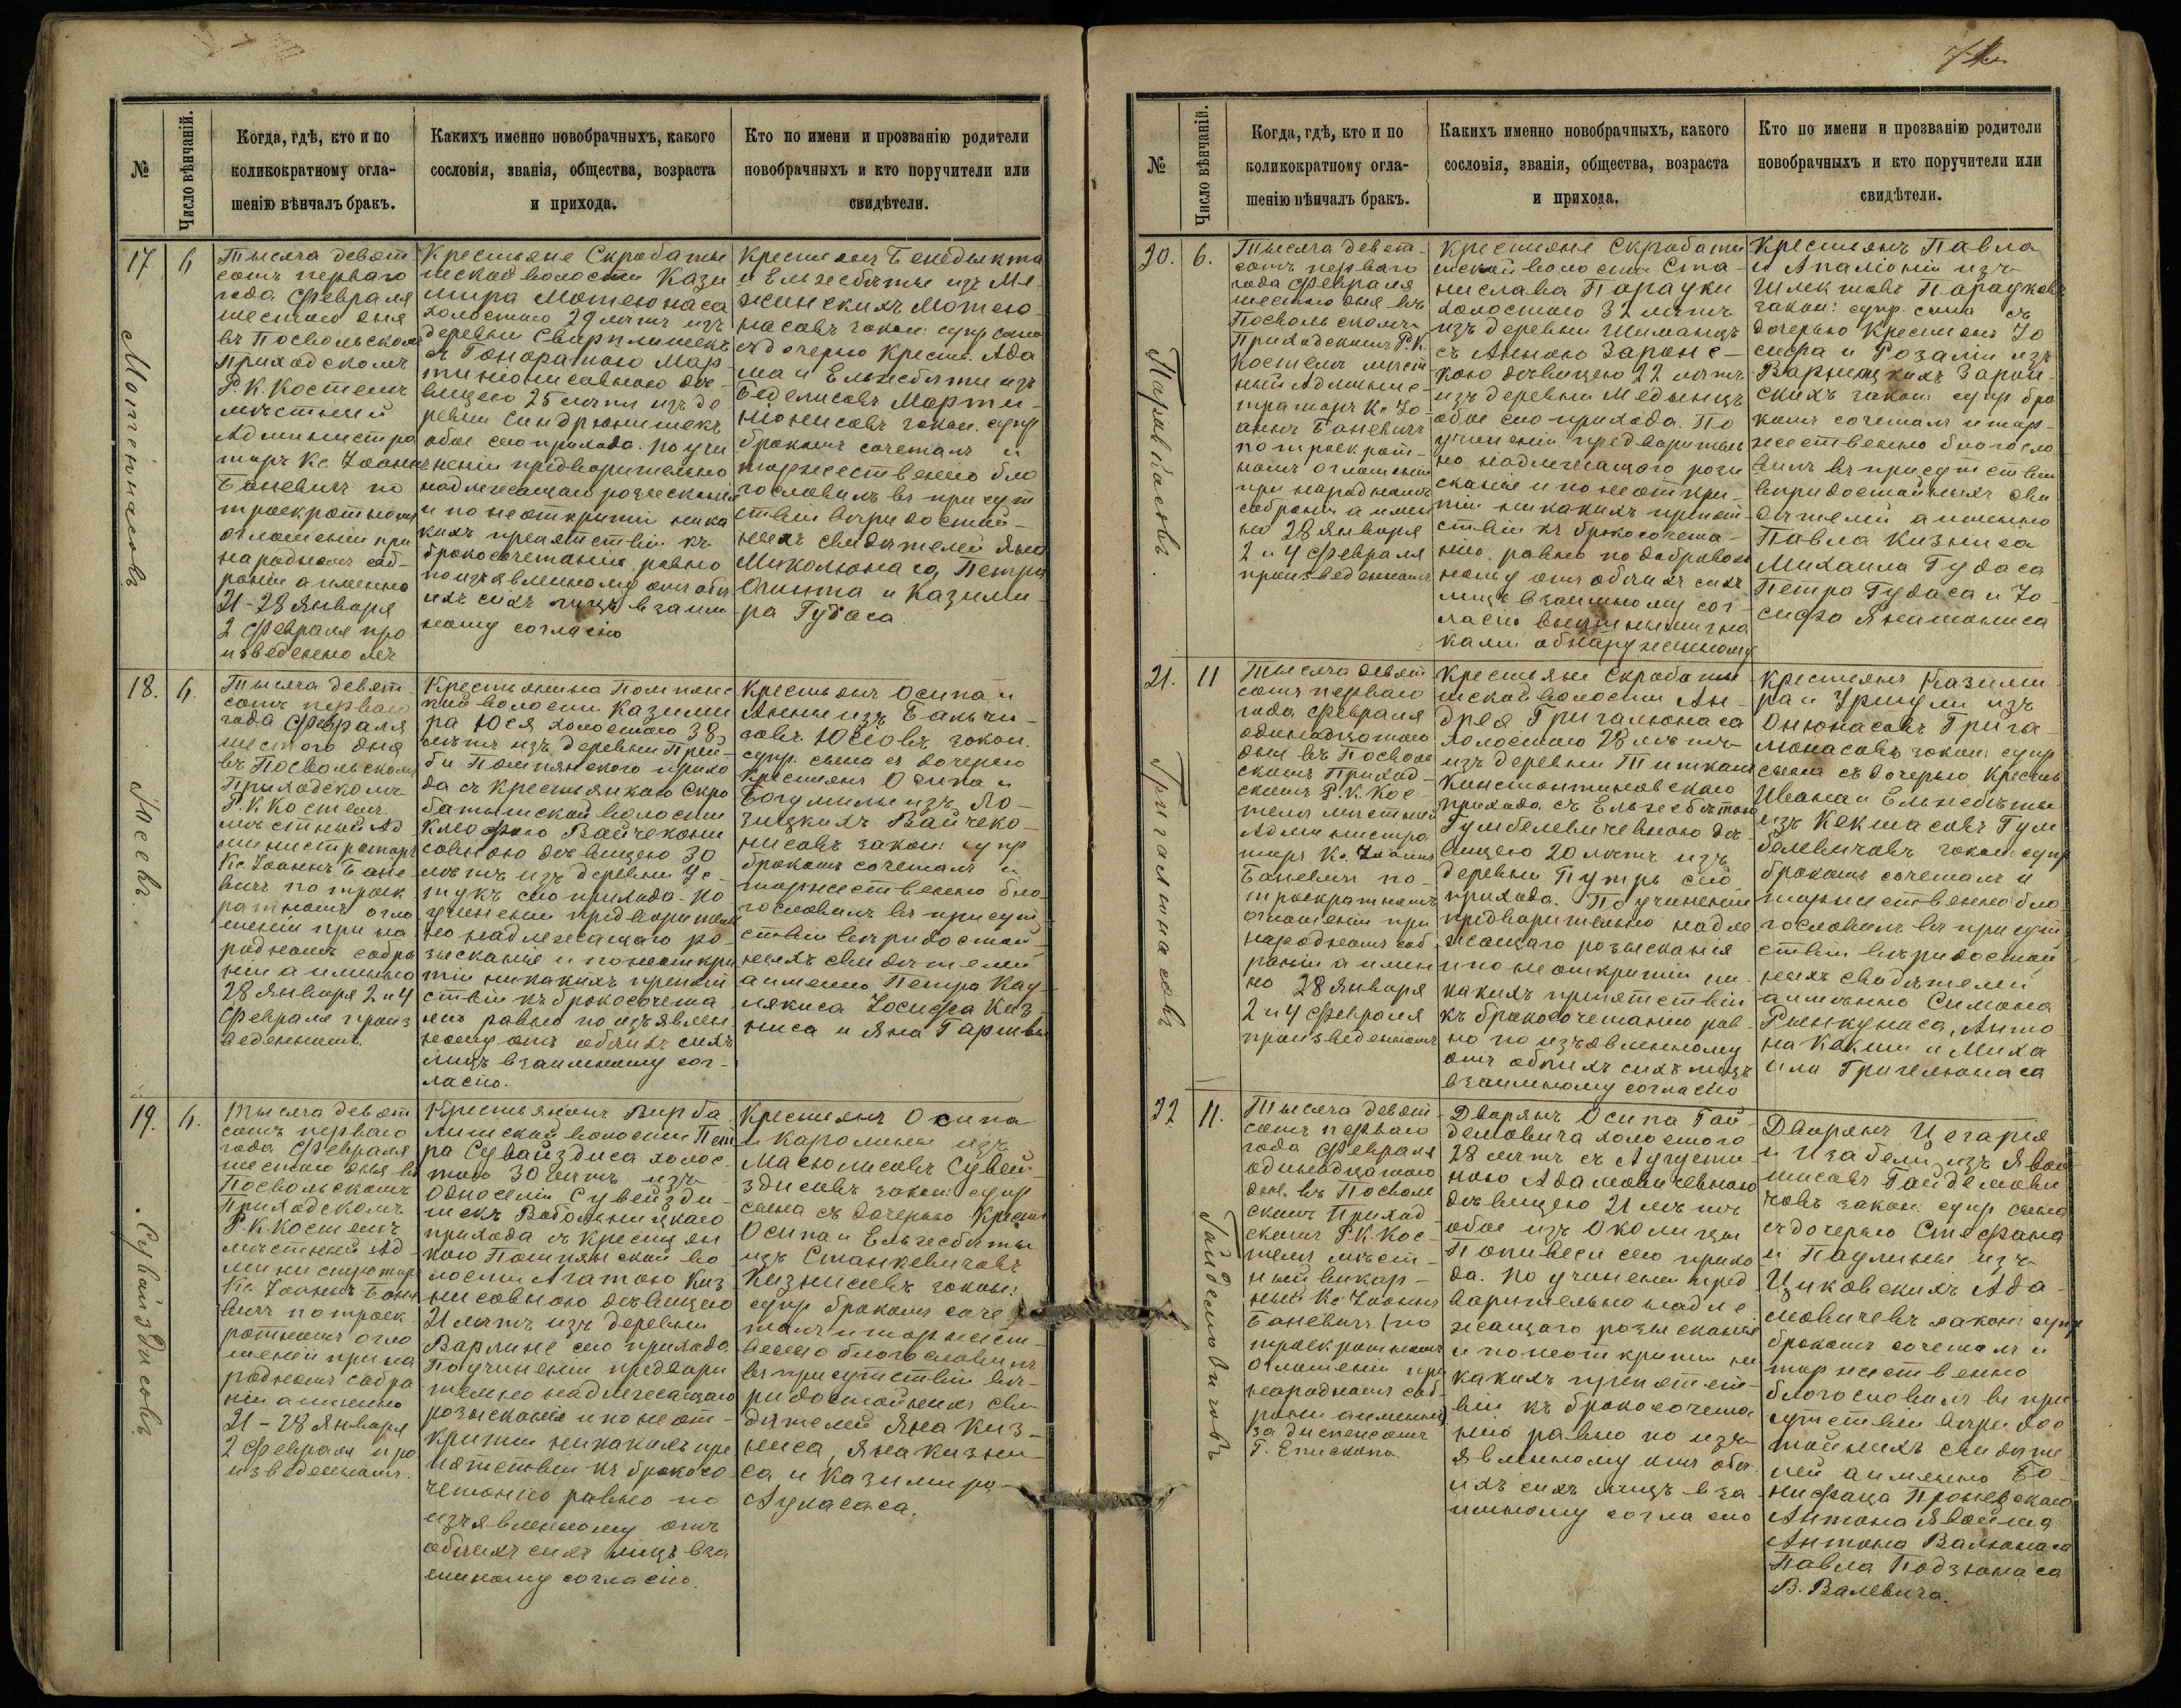 74
№
Число вѣнчаній.
Когда, гдѣ, кто и по
коликократному огла-
шенію вѣнчалъ бракъ.
Какихъ именно новобрачныхъ, какого
сословія, званія, общества, возраста
и прихода.
Кто по имени и прозванію родители
новобрачныхъ и кто поручители или
свидѣтели.
17
6
Тысяча девят
сотъ перваго
года Февраля
шестого дня
въ Посвольскомъ
Приходскомъ
Р. К. Костелѣ
мѣстный
Администра
торъ Кс. Іоаннъ
Баневичъ по
троекратномъ
оглашеніи при
народномъ соб-
раніи а именно
21-28 Января
2 Февраля про
изведенномъ
Крестьяне Скробатыш
ской волости Кази
мира Мотеюнаса
холостаго 29 лѣтъ изъ
деревни
съ Гоноратою Мар
тинонисовною дѣ-
вицею 25 лѣтъ изъ де
ревни Синдрюнишекъ
обое сего прихода. По учи
неніи предварительно
надлежащаго розысканія
и по неоткрытіи ника
кихъ препятствій къ
бракосочетанію равно
по изъявленному отъ обо
ихъ сихъ лицъ взаим
ному согласію
Крестьянъ Бенедыкта
и Ельжебѣты изъ
Мотею-
насовъ закон: супр сына
съ дочерью Крестья. Ада
ма и Ельжебѣты изъ
Беделисовъ Марти-
нонисовъ закон. супр
бракомъ сочеталъ и
торжественно бла
гословилъ въ присут
ствіи вѣридостой-
ныхъ свидѣтелей Яна
Миколюнаса, Петра
и Казими-
ра Гудаса
Мотеюнасовъ
18.
6.
Тысяча девят
сотъ перваго
года Февраля
шестого дня
въ Посвольскомъ
Приходскомъ
Р. К Костелѣ
мѣстный Ад
министраторъ
Кс. Іоаннъ Бане
вичъ по троек
ратномъ огла
шеніи при на
родномъ собра
ніи а именно
28 Января 2 и 4
Февраля произ
веденномъ.
Крестьянина Помпянс
кой волости Казими
ра Юся холостаго 38
лѣтъ изъ деревни Прей-
би Помпянского прихо
да съ Крестьянкою Скро
батышской волости
Клеофою Вайчекони
совною дѣвицею 30
лѣтъ изъ деревни Ус-
тукъ сего прихода. По
учиненіи предваритель
но надлежащаго ро-
зысканія и по неоткры
тіи никакихъ препят
ствій къ бракосочета
нію равно по изъявлен
ному отъ обоихъ сихъ
лицъ взаимному сог-
ласію.
Крестьянъ Осипа и
Анны изъ Бальчи-
совъ Юсовъ закон.
супр. сына съ дочерью
Крестьянъ Осипа и
Богумилы изъ Ло-
зицкихъ Вайчеко-
нисовъ закон: супр
бракомъ сочеталъ и
торжественно бла-
гословилъ въ присут
ствіи вѣридостой-
ныхъ свидѣтелей
а именно Петра Кад
лякиса Іосифа Киз
ниса и Яна Гаршвы
Юсевъ.
19.
6.
Тысяча девят
сотъ перваго
года Февраля
шестого дня въ
Посвольскомъ
Приходскомъ
Р. К. Костелѣ
мѣстный Ад-
министраторъ
Кс. Іоаннъ Бане
вичъ по троек
ратномъ огла
шеніи при на
родномъ собра
ніи а именно
21-28 Января
2 Февраля про
изведенномъ.
Крестьянинъ Вирба
лишской волости Пет
ра Сувайздиса холос-
таго 30 лѣтъ изъ
односелія Сувейзди-
шекъ Вабольницкаго
прихода съ крестьян
кою Помпянской во
лости Агатою Киз
нисовною дѣвицею
21 лѣтъ изъ деревни
Варлине сего прихода
По учиненіи предвари
тельно надлежащаго
розысканія и по неот-
крытіи никакихъ пре
пятствій къ бракосо
четанію равно по
изъявленному отъ
обоихъ сихъ лицъ вза
имному согласію.
Крестьянъ Осипа
и Каролины изъ
Масюлисовъ Сувей-
здисовъ закон: супр
сына съ дочерью Крестья
Осипа и Ельжебѣты
изъ Станкевичовъ
Кизнисовъ закон:
супр бракомъ соче
талъ и торжест-
венно благословилъ
въ присутствіи вѣ-
ридостойныхъ сви-
дѣтелей Яна Киз-
ниса, Яна Кизни-
са и Казимира
Лукасаса.
Сувайздисовъ
№
Число вѣнчаній.
Когда, гдѣ, кто и по
коликократному огла-
шенію вѣнчалъ бракъ.
Какихъ именно новобрачныхъ, какого
сословія, званія, общества, возраста
и прихода.
Кто по имени и прозванію родители
новобрачныхъ и кто поручители или
свидѣтели.
20.
6.
Тысяча девят-
сотъ перваго
года Февраля
шестого дня въ
Посвольскомъ
Приходскомъ Р. К.
Костелѣ мѣст
ный Админис-
траторъ Кс. Іо-
аннъ Баневичъ
по троекрат-
номъ оглашеніи
при народномъ
собраніи а имен
но 28 Января
2 и 4 Февраля
произведенномъ
Крестьяне Скробаты
шской волости Ста-
нислава Парауки
холостаго 32 лѣтъ
изъ деревни Шиманцъ
съ Анною Заронс-
кою дѣвицею 22 лѣтъ
изъ деревни Медынцъ
обое сего прихода. По
учиненіи предваритель
но надлежащаго розы
сканія и по неоткры-
тіи никакихъ препят-
ствій къ бракосочета-
нію, равно по доброволь
ному отъ обоихъ сихъ
лицъ взаимному сог-
ласію внѣшними зна
ками обнаруженному
Крестьянъ Павла
и Апалоніи изъ
Шлектовъ Парауковъ
закон: супр. сына съ
дочерью Крестьянъ Іо
сифа и Розаліи изъ
Варнецкихъ Зарон-
скихъ закон: супр бра
комъ сочеталъ и тор-
жественно благосло
вилъ въ присутствіи
вѣридостойныхъ сви
дѣтелей а именно
Павла Кизниса
Михаила Гудаса
Петра Гудаса и Іо-
сифа Янатониса
21.
11
Тысяча девят
сотъ перваго
года Февраля
одинадцатаго
дня въ Посволь
скомъ Приход-
скомъ Р. К. Кос-
телѣ мѣстный
Администра
торъ Кс. Іоаннъ
Баневичъ по-
троекратномъ
оглашеніи при
народномъ соб
раніи а имен
но 28 Января
2 и 4 Февраля
произведенномъ
Крестьяне Скробаты
шской волости Ан-
дрея Григалюнаса
холостаго 28 лѣтъ
изъ деревни Титкани
Константиновскаго
прихода съ Ельжебѣтою
Гумбелевичевною дѣ-
вицею 20 лѣтъ изъ
деревни Путръ сего
прихода. По учиненіи
предварительно надле
жащаго розысканія
и по неоткрытіи ни
какихъ препятствій
къ бракосочетанію рав-
но по изъявленному
отъ обоихъ сихъ лицъ
взаимному согласію
Крестьянъ Казими
ра и Уршули изъ
Онюнасовъ Грига
люнасовъ закон: супр
сына съ дочерью Крестьянъ
Ивана и Ельжебѣты
изъ Кекшасовъ Гум
белевичовъ закон: супр
бракомъ сочеталъ и
торжественно бла
гословилъ въ присут
ствіи вѣридостой
ныхъ свидѣтелей
а именно Симона
Рынкунаса, Анто
на Кекши и Миха
ила Григелюнаса
Григалюнасовъ
22.
11.
Тысяча девят-
сотъ перваго
года Февраля
одинадцатаго
дня въ Посволь
скомъ Приход-
скомъ Р. К. Кос-
телѣ мѣст-
ный викар-
ный Кс Іоаннъ
Баневичъ по
троекратномъ
оглашеніи при
народномъ соб-
раніи а именно
за диспенсомъ
Г. Епископа.
Дворянъ Осипа Гай-
демовича холостого
28 лѣтъ съ Августи-
ною Адамовичевною
дѣвицею 21 лѣтъ
обое изъ Околицы
Попивеси сего прихо
да. По учиненіи пред
варительно надле
жащаго розысканія
и по неоткрытіи ни
какихъ препятст-
вій къ бракосочета
нію равно по изъ-
явленному отъ обо
ихъ сихъ лицъ вза
имному согласію
Дворянъ
и Изабели изъ Явой
шисовъ Гайдемови
човъ закон: супр сына
съ дочерью Стефана
и Паулины изъ
Цыковскихъ Ада-
мовичевъ закон: супр
бракомъ сочеталъ и
торжественно
благословилъ въ при
сутствіи вѣридос
тойныхъ свидѣте
лей а именно Бо-
нифаца Проневскаго
Антона Явойша
Антона Валюнаса
Павла Подзюнаса
В. Валевича.
Гайдемовичовъ